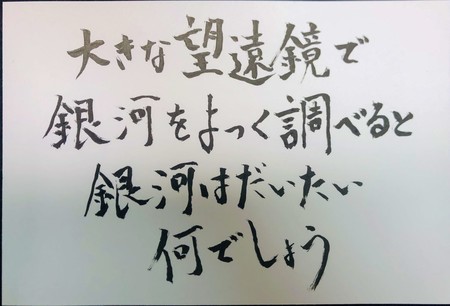 大きな望遠鏡で
銀河をよっく調べると
銀河はだいたい
何でしょう